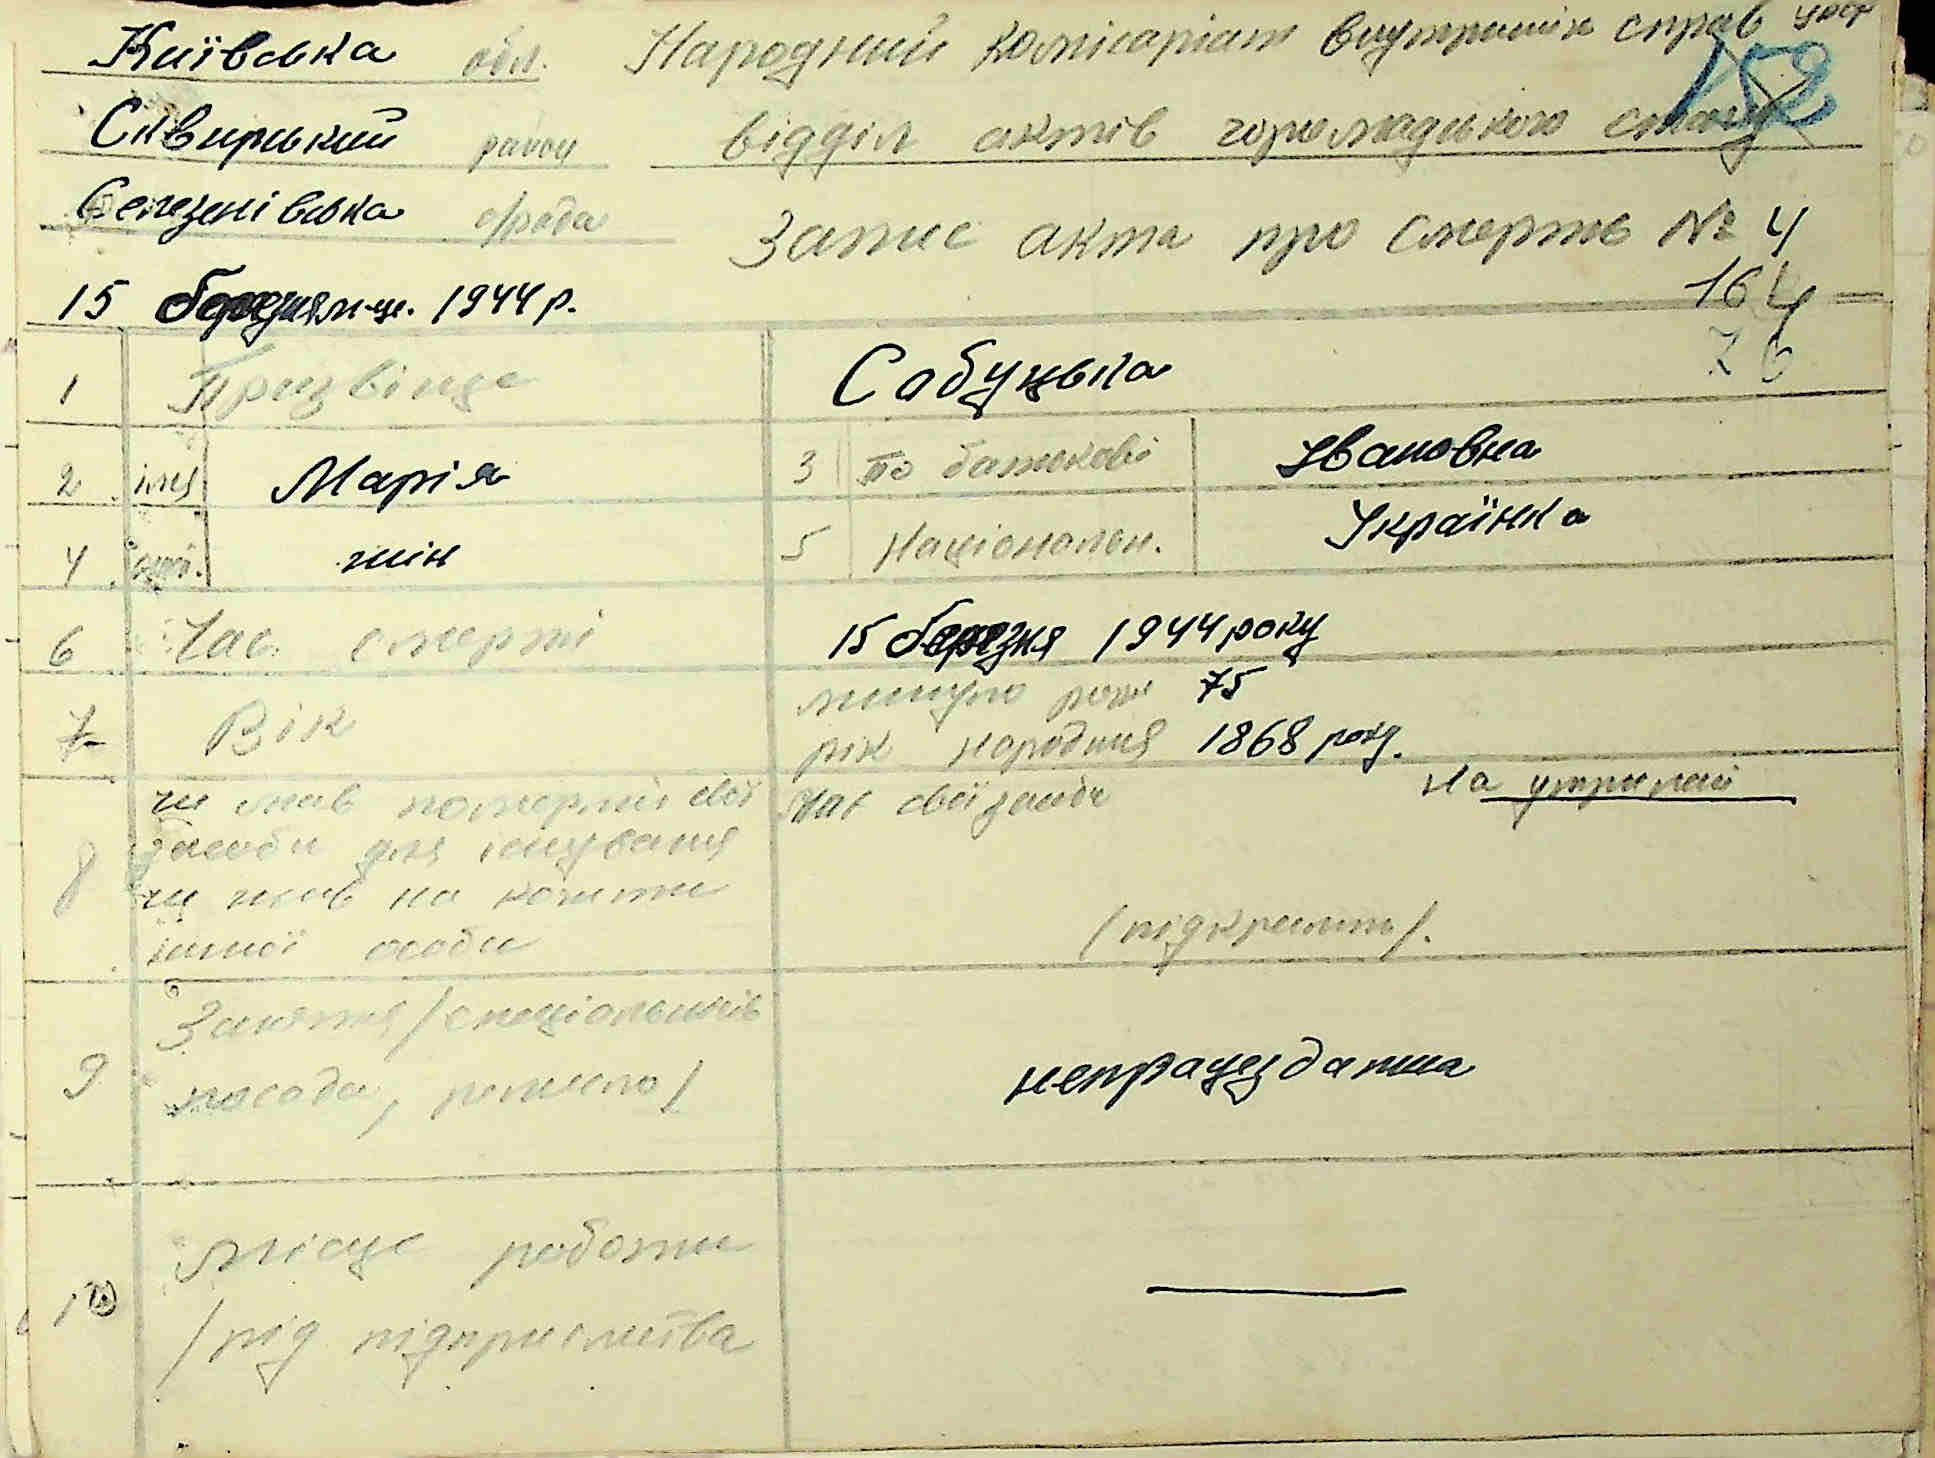 Київська обл. Народний комісаріат внутрішніх справ УРСР
152
Сквирський район відділ актів громадського стану
Селезенівська с/рада Запис акта про смерть № 4
15 березня м-ця. 1944 р. 164
76
1 Призвіще Сабуцька
2 імя Марія 3 по батькові Івановна
4 жін 5 Національн. Українка
6 Час смерті 15 березня 1944 року
7 Вік минуло років 75
рік народжня 1868 року.
8 чи мав померлий свої Мав свої засоби На утриман
засоби для існування
чи жив на кошти
іншої особи (підкреслить).
9 Заняття (спеціальність
посада, ремесло) непрацездатна
10 Місце роботи
(рід підприємства